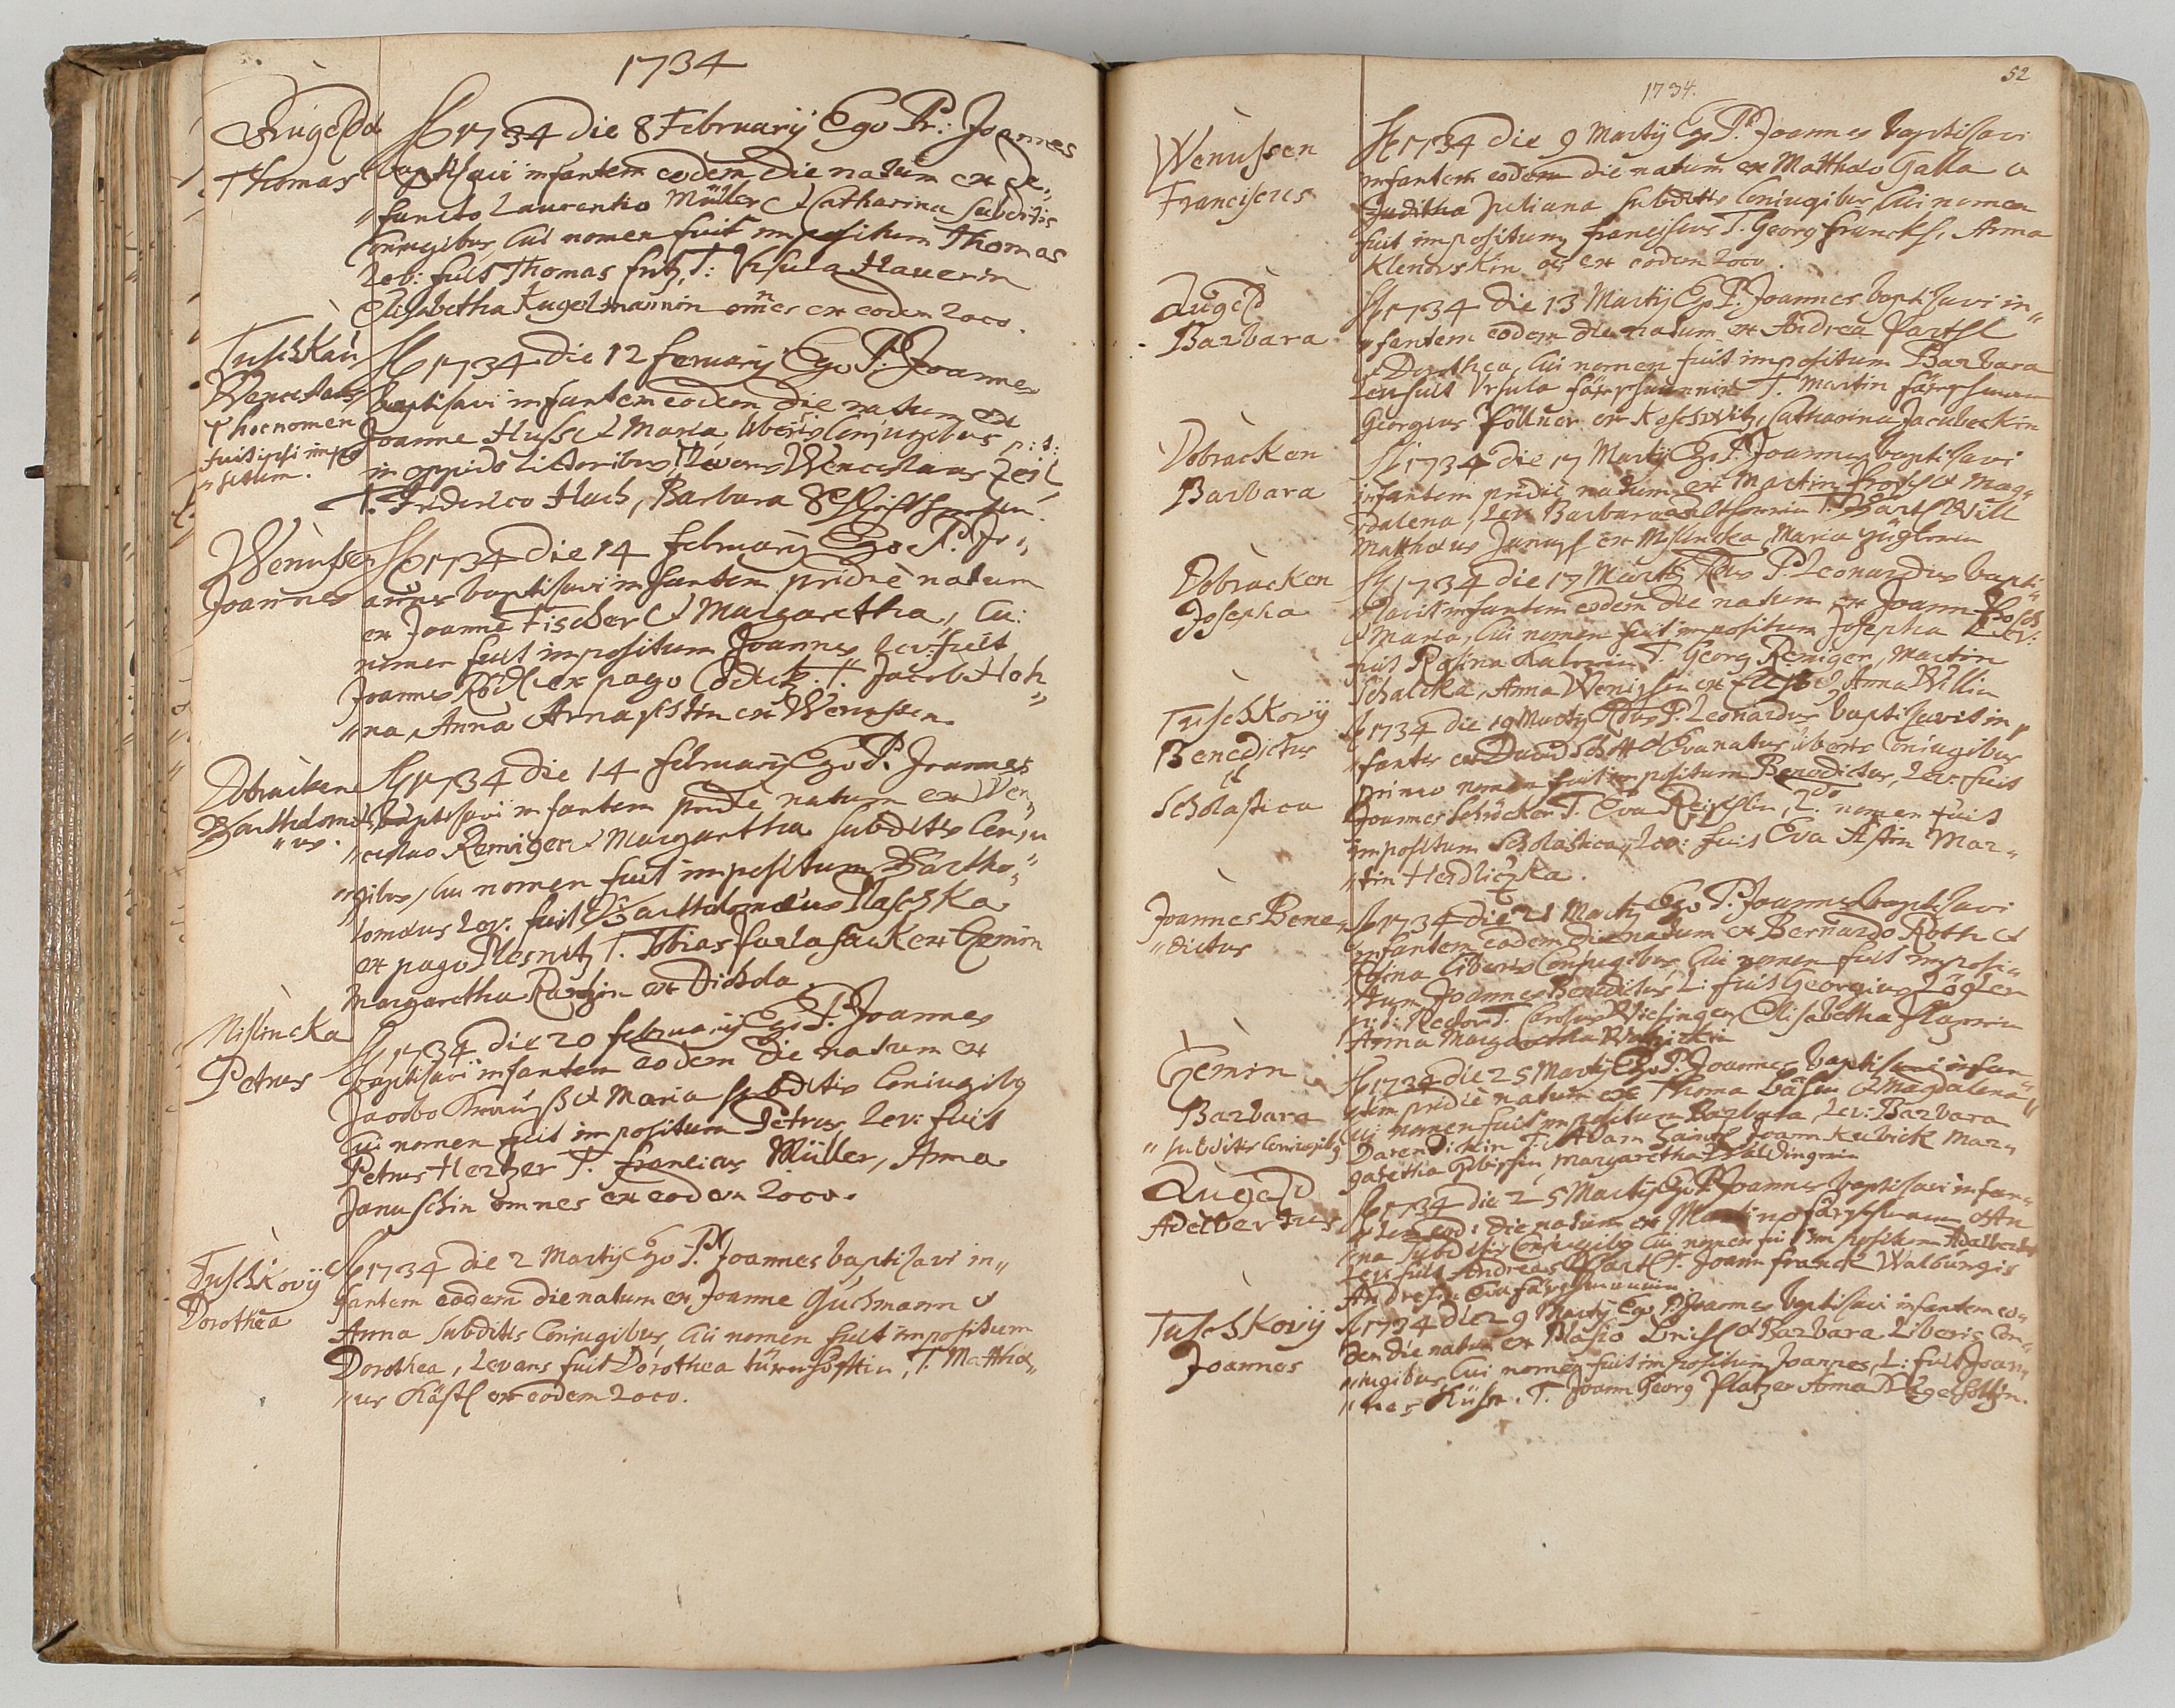 1734
Augezd
Thomas
A 1734 die 8 February Ego Pr: Joannes
baptisavi infantem eodem die natum ex de„
„functo Laurentio Müller et Catharina subditis
Conjugibus, cui nomen fuit impositum Thomas
Lev: fuit Thomas fritz, T: Ursula Hauerin
Elisabetha Kugelmannin omnes ex eodem Loco.
Tuschkau
Wenceslaus
hoc nomen
fuit ipsi impo
„situm.
A 1734 die 12 feruary Ego P. Joannes
baptisavi infantem eodem die natum ex
Joanne Husse et Maria liberis Conjugibus p: t:
in oppido Levans Wenceslaus
T. Friderico Huch, Barbara
Wenussen
Joannes
A 1734 die 14 february Ego P. Jo„
annes baptisavi infantem pridie natum
ex Joanne Fischer et Margaretha, cui
nomen fuit impositum Joannes Lev: fuit
Joannes Rödl ex pago T. Jacob Hoh„
„na, Anna ex Wenussen.
Dobraken
Bartholomæ
„us.
A 1734 die 14 february Ego P. Joannes
baptisavi infantem pridie natum ex Wen„
„ceslao Reiniger et Margaretha subditis Conju„
„gibus, cui nomen fuit impositum Bartho„
lomæus Lev. fuit Bartholomæus Naschka
ex pago Plesnitz T. Tobias ex Cžemin
Margaretha ex Dichola
Mislincka
Petrus
A 1734 die 20 february Ego P. Joannes
baptisavi infantem eodem die natum ex
Jacobo Krauß et Maria subditis Coniugibg
cui nomen fuit impositum Petrus Lev: fuit
Petrus Hertzer T. francius Müller, Anna
Januschin omnes ex eodem Loco.
Tuschkovÿ
Dorothea
A 1734 die 2 Martÿ Ego P. Joannes baptisavi in„
fantem eodem die natum ex Joanne Guchmann et
Anna subditis Conjugibus, cui nomen fuit impositum
Dorothea, Levans fuit Dorothea T. Matthæ„
„us Kästl ex eodem Loco.
52
1734.
Wenussen
Franciscus
A 1734 die 9 Martÿ Ego P. Joannes baptisavi
infantem eodem die natum ex Matthæo Galla et
Juditha Juliana subditis Coniugibus, cui nomen
fuit impositum franciscus T. Georg Franck, Anna
Klenovskin ex eodem Loco.
Augezd
Barbara
A 1734 die 13 Martÿ Ego P. Joannes baptisavi in„
„fantem eodem die natum ex Andrea Partl
et Dorothea, cui nomen fuit impositum Barbara
Lev fuit Ursula T. Martin
Georgius Föllner ex Koschwitz, Catharina Jacubeckin
Dobracken
Barbara
A 1734 die 17 Martÿ Ego P. Joannes baptisavi
infantem pridie natum ex Martin Frosch et Mag„
„dalena, Lev. Barbara T. Will
Matthæus Janusch ex Mislincka Maria
Dobracken
Josepha
A 1734 die 17 Martÿ P. Leonardus bapti„
„savit infantem eodem die natum ex Joann
et Maria, cui nomen fuit impositum Josepha Lev:
fuit Rosina T. Georg Reniger, Martin
Schalcka, Anna ex Anna Willin
Tuschkovÿ
Benedictus
et
Scholastica
A 1734 die 19 Martÿ P. Leonardus baptisavit in„
„fantes ex David Schott et Eva natus liberis Coniugibus
primo nomen fuit impositum Benedictus, Lev. fuit
Joannes Schücker T. Eva 2do nomen fuit
impositum Scholastica, Lev: fuit Eva Mar„
„tin Herdliczka.
Joannes Bene„
„dictus
A 1734 die 21 Martÿ Ego P. Joannes baptisavi
infantem eodem die natum ex Bernardo Roth et
Rosina liberis Conjugibus cui nomen fuit imposi„
„tum Joannes Benedictus, L: fuit Georgius Lögler
p: t: Rector T. Carolus Elisabetha
Anna Margaretha
Cžemin
Barbara
„subditis Coniugibg
A 1734 die 25 Martÿ Ego P. Joannes baptisavi infan„
„tem pridie natum ex Thoma et Magdalena
cui nomen fuit impositum Barbara, Lev: Barbara
T. Adam Joann Kubick Mar„
garetha Margaretha
Augezd
Adelbertus
A 1734 die 25 Martÿ Ego P. Joannes baptisavi infan„
„tem eod: die natum ex Martino et An
„na subditis Conjugibg cui nomen fuit impositum Adalbertus
Lev: fuit Andreas T. Joann Franck Walburgis
Tuschkovÿ
Joannes
A 1734 die 29 Martÿ Ego P. Joannes baptisavi infantem eo„
dem die natum ex Blasio et Barbara liberis Con„
„iugibus, cui nomen fuit impositum Joannes, L: fuit Joan„
„nes T. Joann Georg Platzer Anna